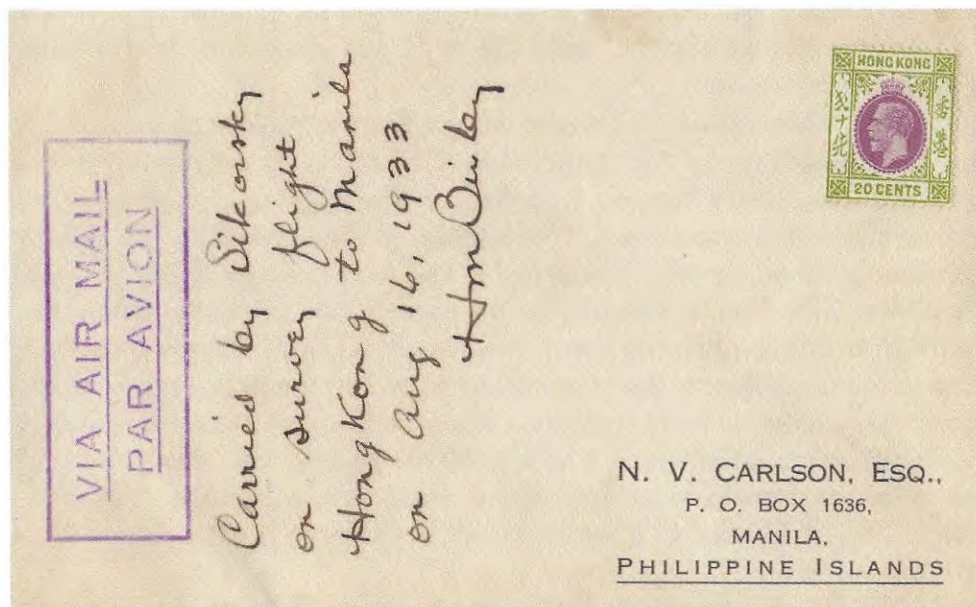 VIA AIR MAIL
PAR AVION
Carried by Sikorsky
on survey flight
Hong Kong to Manila
on Aug 16, 1933
HONG KONG
20 CENTS
N. V. CARLSON, ESQ.,
P. O. BOX 1636,
MANILA,
PHILIPPINE ISLANDS